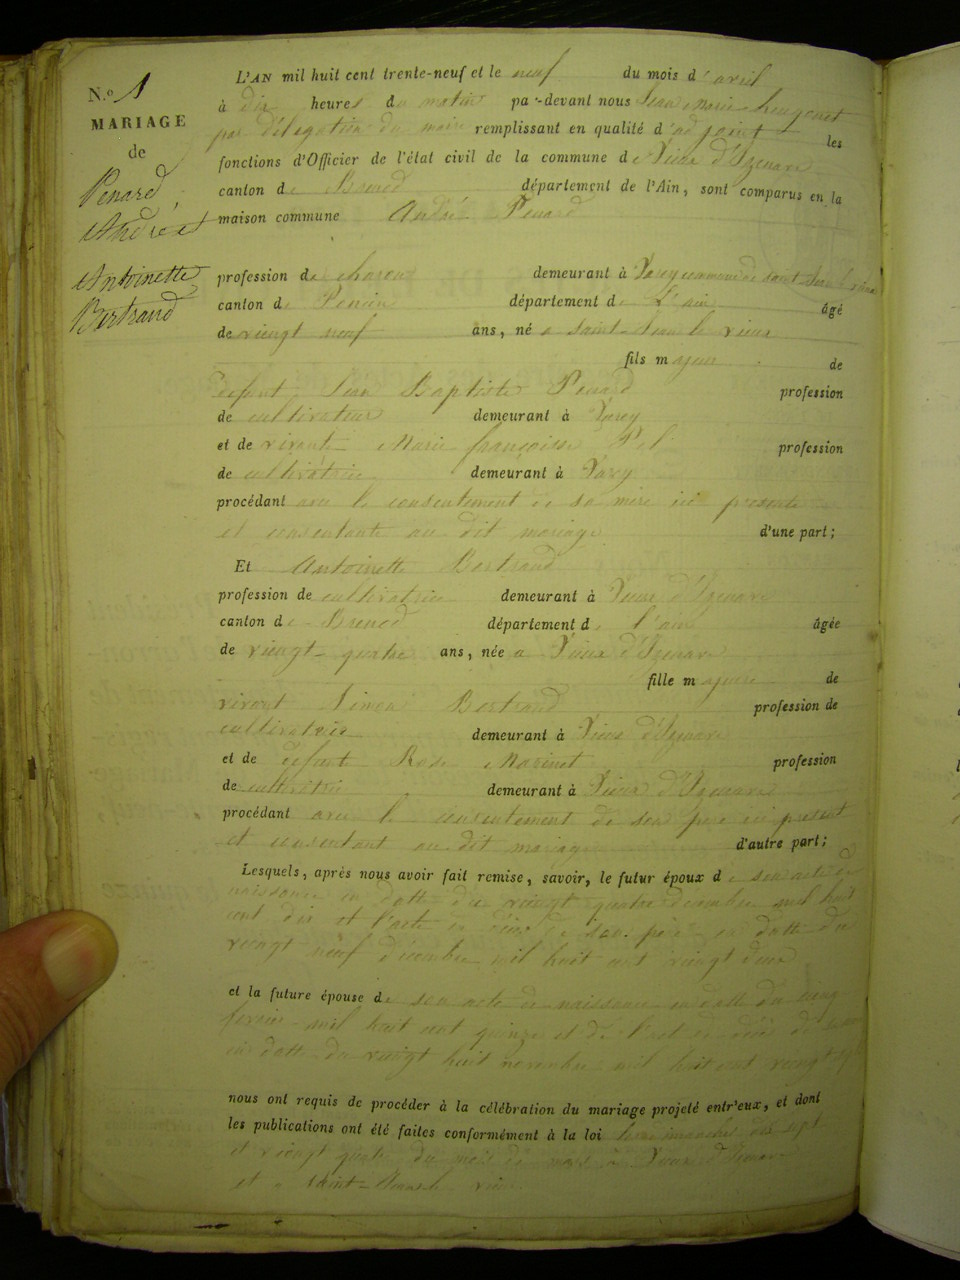 N.º 1
MARIAGE
de
Penard,
André et
Antoinette
Bertrand
L'AN mil huit cent trente-neuf et le neuf du mois d'avril
à dix heures du matin par-devant nous Jean Marie
par délégation du maire remplissant en qualité d'adjoint les
fonctions d'Officier de l'état civil de la commune de Vieux d'Izenave
canton de Brenod département de l'Ain, sont comparus en la
maison commune André Penard
profession de demeurant à Varey commune de saint Jean le vieux
canton de Poncin département de L'ain âgé
de vieingt neuf ans, né a saint Jean le vieux
fils majeur de
défunt Jean Baptiste Penard profession
de cultivateur demeurant à Varey
et de vivante Marie françoise profession
de cultivatrice demeurant à Varey
procédant avec le consentement de sa mère ici presente
et consentante au dit mariage d'une part;
Et Antoinette Bertrand
profession de cultivatrice demeurant à Vieux d'Izenave
canton de Brenod département de l'ain âgée
de vieingt quatre ans, née a Vieux d'Izenave
fille majeure de
vivant Simon Bertrand profession de
demeurant à Vieux d'Izenave
et de défunt Rose Marinet profession
de cultivatrice demeurant à Vieux d'Izenave
procédant avec le consentement de son père ici présent
et consentant au dit mariage d'autre part;
Lesquels, après nous avoir fait remise, savoir, le futur époux de son acte de
naissance en datte du vieingt quatre décembre mil huit
cent dix et l'acte de décès de son père en datte du
vieingt neuf décembre mil huit cent vieingt deux
et la future épouse de son acte de naissance en datte du
fevrier mil huit cent quinze et de l'acte de décès de
en datte du vieingt huit novembre mil huit cent vieingt
nous ont requis de procéder à la célébration du mariage projeté entr'eux, et dont
les publications ont été faites conformément à la loi
et vieingt quatre du mois de mars à Vieux d'Izenave
et a saint-Jean le vieux